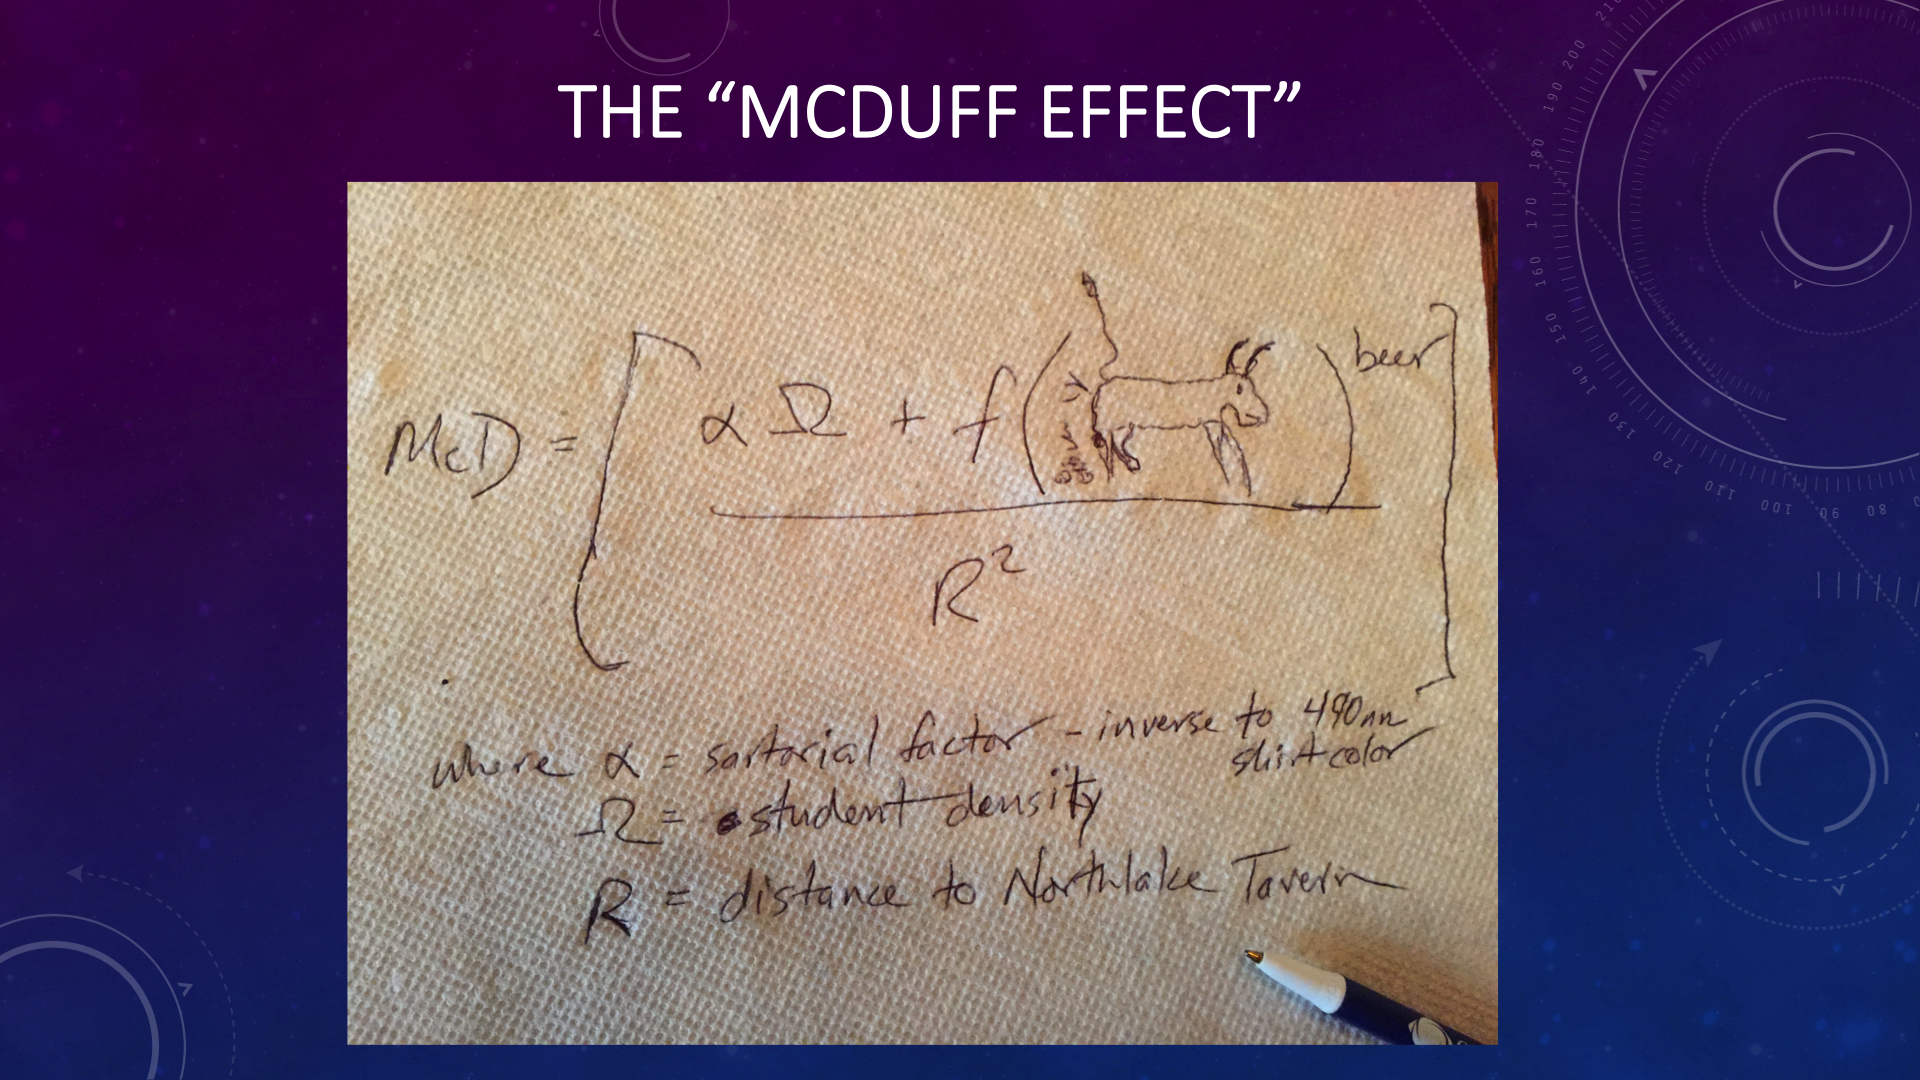 THE “MCDUFF EFFECT”
McD = [ α Ω + f ( )^beer ]
R²
where α = sartorial factor - inverse to 490nm
shirt color
Ω = student density
R = distance to Northlake Tavern
210
200
190
180
170
160
150
140
130
120
110
100
90
80